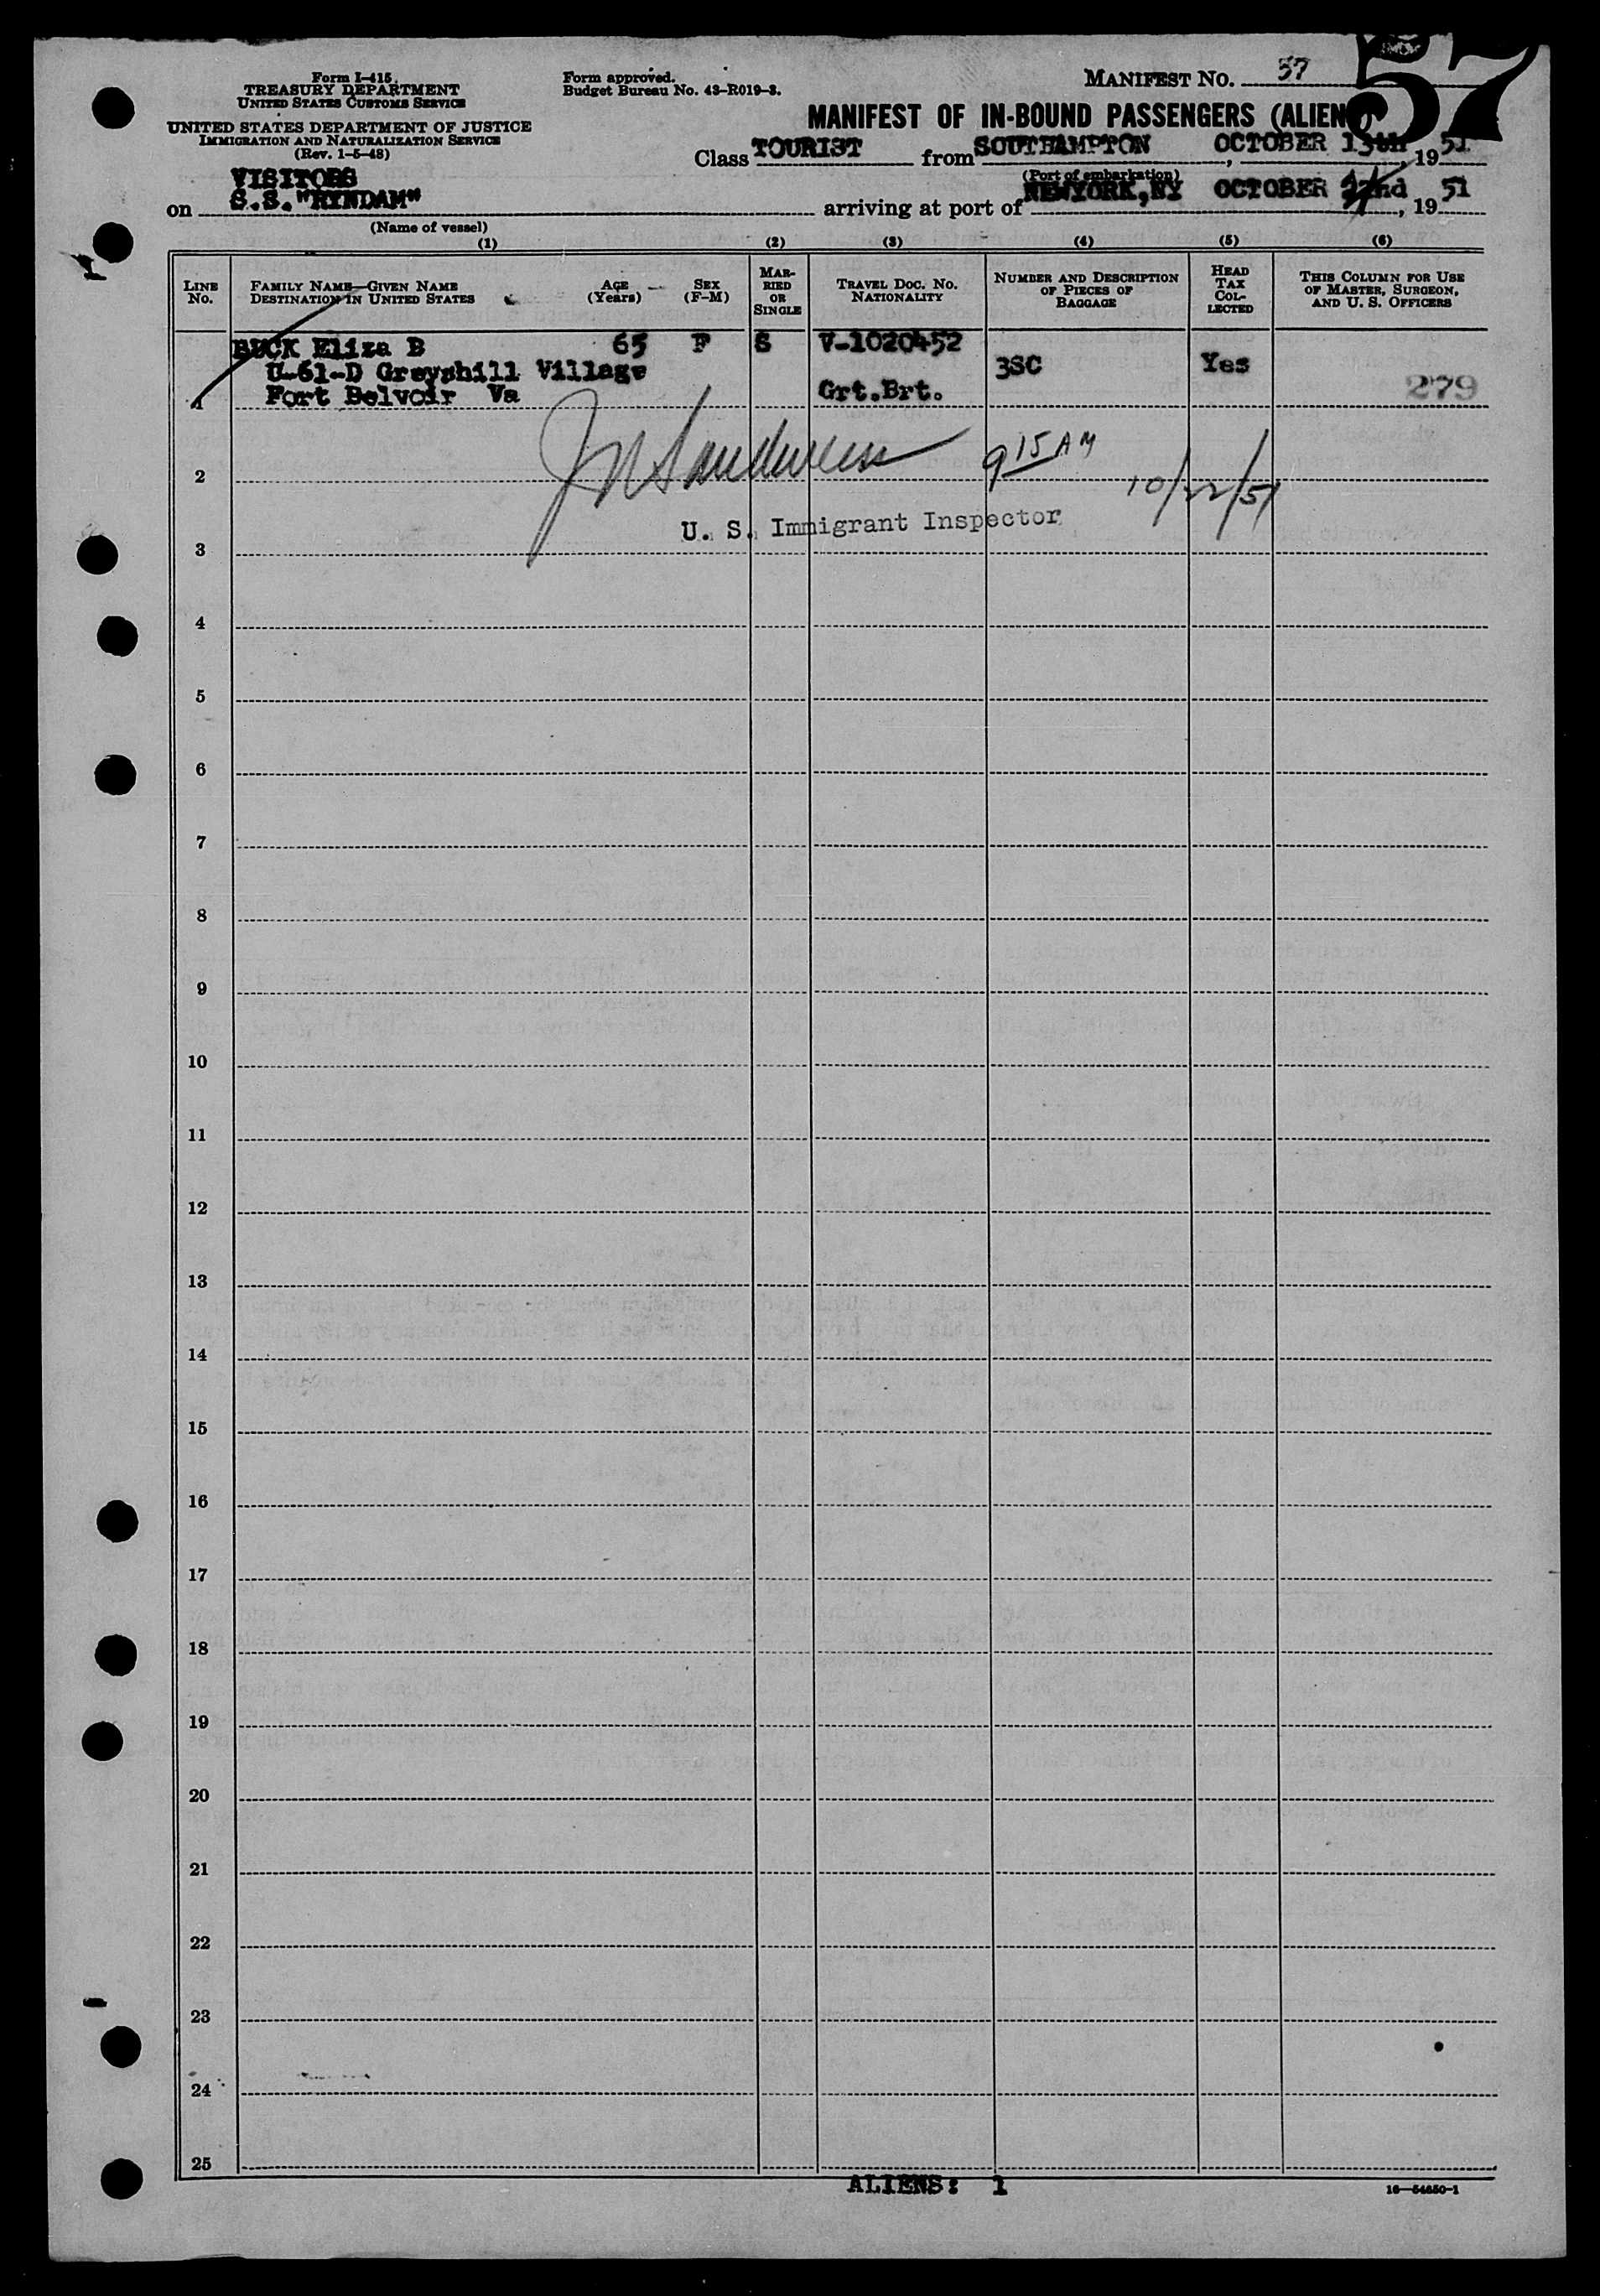 Form I-415
TREASURY DEPARTMENT
UNITED STATES CUSTOMS SERVICE
UNITED STATES DEPARTMENT OF JUSTICE
IMMIGRATION AND NATURALIZATION SERVICE
(Rev. 1-5-48)
Form approved.
Budget Bureau No. 43-R019-3.
MANIFEST No. 57
57
MANIFEST OF IN-BOUND PASSENGERS (ALIEN
Class TOURIST from SOUTHAMPTON, OCTOBER 13th, 1951
(Port of embarkation)
VISITORS
on S.S."RYNDAM" arriving at port of NEWYORK,NY OCTOBER 22nd, 1951
(Name of vessel)
(1) (2) (3) (4) (5) (6)
LINE No.
FAMILY NAME—GIVEN NAME
DESTINATION IN UNITED STATES
AGE (Years)
SEX (F-M)
MAR-RIED OR SINGLE
TRAVEL DOC. NO.
NATIONALITY
NUMBER AND DESCRIPTION OF PIECES OF BAGGAGE
HEAD TAX COL-LECTED
THIS COLUMN FOR USE OF MASTER, SURGEON, AND U. S. OFFICERS
BUCK Eliza B 65 F S V-1020452
U-61-D Greyshill Village 3SC Yes
1 Fort Belvoir Va Grt.Brt. 279
9 15 AM
2 10/22/51
U. S. Immigrant Inspector
3
4
5
6
7
8
9
10
11
12
13
14
15
16
17
18
19
20
21
22
23
24
25
ALIENS: 1
16—54650-1